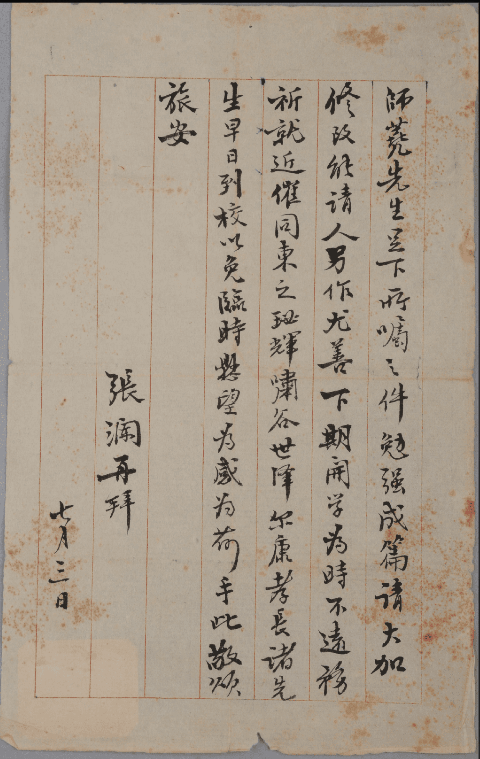 師蕘先生足下所囑之件勉强成篇請大加
修改能請人另作尤善下期開学為時不遠務
祈就近催同東之珽輝嘯谷世澤尔康孝長諸先
生早日到校以免臨時懸望為感為荷手此敬頌
旅安
張瀾再拜
七月三日